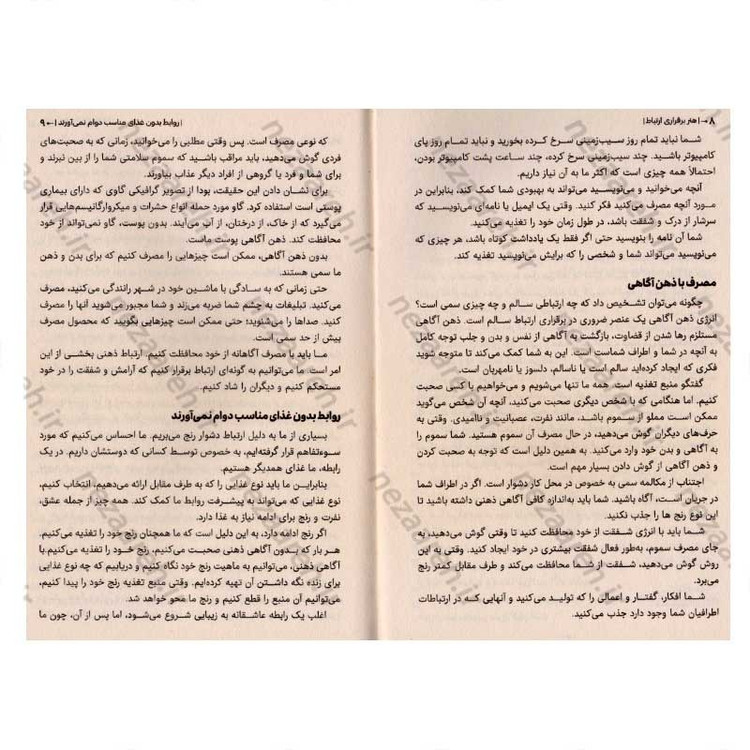 ۸ → | هنر برقراری ارتباط |
شما نباید تمام روز سیب‌زمینی سرخ کرده بخورید و نباید تمام روز پای
کامپیوتر باشید. چند سیب‌زمینی سرخ کرده، چند ساعت پشت کامپیوتر بودن،
احتمالاً همه چیزی است که اکثر ما به آن نیاز داریم.
آنچه می‌خوانید و می‌نویسید می‌تواند به بهبودی شما کمک کند، بنابراین در
مورد آنچه مصرف می‌کنید فکر کنید. وقتی یک ایمیل یا نامه‌ای می‌نویسید که
سرشار از درک و شفقت باشد، در طول زمان خود را تغذیه می‌کنید.
شما آن نامه را بنویسید حتی اگر فقط یک یادداشت کوتاه باشد، هر چیزی که
می‌نویسید می‌تواند شما و شخصی را که برایش می‌نویسید تغذیه کند.
مصرف با ذهن آگاهی
چگونه می‌توان تشخیص داد که چه ارتباطی سالم و چه چیزی سمی است؟
انرژی ذهن آگاهی یک عنصر ضروری در برقراری ارتباط سالم است. ذهن آگاهی
مستلزم رها شدن از قضاوت، بازگشت به آگاهی از نفس و بدن و جلب توجه کامل
به آنچه در شما و اطراف شماست است. این به شما کمک می‌کند تا متوجه شوید
فکری که ایجاد کرده‌اید سالم است یا ناسالم، دلسوز یا نامهربان است.
گفتگو منبع تغذیه است. همه ما تنها می‌شویم و می‌خواهیم با کسی صحبت
کنیم. اما هنگامی که با شخص دیگری صحبت می‌کنید، آنچه آن شخص می‌گوید
ممکن است مملو از سموم باشد، مانند نفرت، عصبانیت و ناامیدی. وقتی به
حرف‌های دیگران گوش می‌دهید، در حال مصرف آن سموم هستید. شما سموم را
به آگاهی و بدن خود وارد می‌کنید. به همین دلیل است که توجه به صحبت کردن
و ذهن آگاهی از گوش دادن بسیار مهم است.
اجتناب از مکالمه سمی به خصوص در محل کار دشوار است. اگر در اطراف شما
در جریان است، آگاه باشید. شما باید به‌اندازه کافی آگاهی ذهنی داشته باشید تا
این نوع رنج ها را جذب نکنید.
شما باید با انرژی شفقت از خود محافظت کنید تا وقتی گوش می‌دهید، به
جای مصرف سموم، به‌طور فعال شفقت بیشتری در خود ایجاد کنید. وقتی به این
روش گوش می‌دهید، شفقت از شما محافظت می‌کند و طرف مقابل کمتر رنج
می‌برد.
شما افکار، گفتار و اعمالی را که تولید می‌کنید و آنهایی که در ارتباطات
اطرافیان شما وجود دارد جذب می‌کنید.
| روابط بدون غذای مناسب دوام نمی‌آورند | ← ۹
که نوعی مصرف است. پس وقتی مطلبی را می‌خوانید، زمانی که به صحبت‌های
فردی گوش می‌دهید، باید مراقب باشید که سموم سلامتی شما را از بین نبرند و
برای شما و فرد یا گروهی از افراد دیگر عذاب بیاورند.
برای نشان دادن این حقیقت، بودا از تصویر گرافیکی گاوی که دارای بیماری
پوستی است استفاده کرد. گاو مورد حمله انواع حشرات و میکروارگانیسم‌هایی قرار
می‌گیرد که از خاک، از درختان، از آب می‌آیند. بدون پوست، گاو نمی‌تواند از خود
محافظت کند. ذهن آگاهی پوست ماست.
بدون ذهن آگاهی، ممکن است چیزهایی را مصرف کنیم که برای بدن و ذهن
ما سمی هستند.
حتی زمانی که به سادگی با ماشین خود در شهر رانندگی می‌کنید، مصرف
می‌کنید. تبلیغات به چشم شما ضربه می‌زند و شما مجبور می‌شوید آنها را مصرف
کنید. صداها را می‌شنوید؛ حتی ممکن است چیزهایی بگویید که محصول مصرف
بیش از حد سمی است.
ما باید با مصرف آگاهانه از خود محافظت کنیم. ارتباط ذهنی بخشی از این
امر است. ما می‌توانیم به گونه‌ای ارتباط برقرار کنیم که آرامش و شفقت را در خود
مستحکم کنیم و دیگران را شاد کنیم.
روابط بدون غذای مناسب دوام نمی‌آورند
بسیاری از ما به دلیل ارتباط دشوار رنج می‌بریم. ما احساس می‌کنیم که مورد
سوءتفاهم قرار گرفته‌ایم، به خصوص توسط کسانی که دوستشان داریم. در یک
رابطه، ما غذای همدیگر هستیم.
بنابراین ما باید نوع غذایی را که به طرف مقابل ارائه می‌دهیم، انتخاب کنیم،
نوع غذایی که می‌تواند به پیشرفت روابط ما کمک کند. همه چیز از جمله عشق،
نفرت و رنج برای ادامه نیاز به غذا دارد.
اگر رنج ادامه دارد، به این دلیل است که ما همچنان رنج خود را تغذیه می‌کنیم.
هر بار که بدون آگاهی ذهنی صحبت می‌کنیم، رنج خود را تغذیه می‌کنیم.با
آگاهی ذهنی، می‌توانیم به ماهیت رنج خود نگاه کنیم و دریابیم که چه نوع غذایی
برای زنده نگه داشتن آن تهیه کرده‌ایم. وقتی منبع تغذیه رنج خود را پیدا کنیم،
می‌توانیم آن منبع را قطع کنیم و رنج ما محو خواهد شد.
اغلب یک رابطه عاشقانه به زیبایی شروع می‌شود، اما پس از آن، چون ما